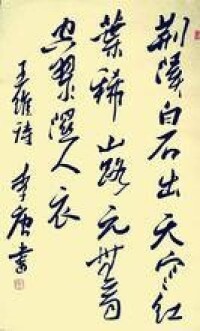 荆溪白石出天寒红
葉稀山路元無雨
空翠濕人衣
王维诗 李書